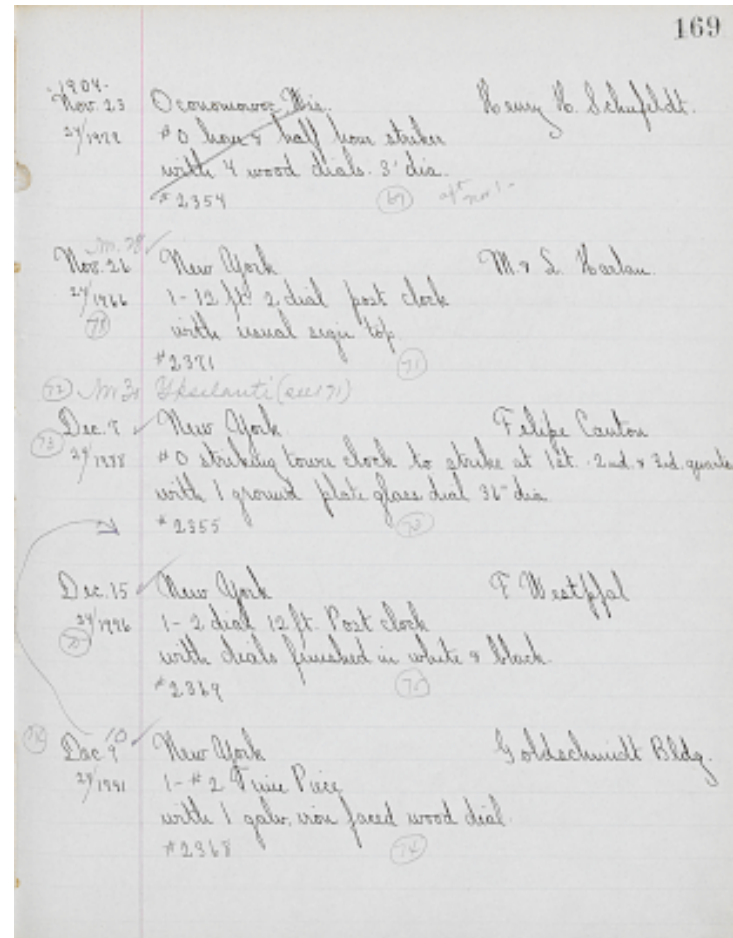 169
1904.
Nov. 23 Oconomowoc Wis. Henry H. Schufeldt.
#0 hour & half hour striker
with 4 wood dials. 3' dia.
#2354 69
Nov. 26 New York M. & L. Harlau.
1-12 ft. 2 dial post clock
with usual sign top.
#2371 71
72 Ypsilanti (see 171)
Dec. 8 New York Felipe Canton
73 #0 striking tower clock to strike at 1st. 2nd. & 3rd. quarte
with 1 ground plate glass dial 36" dia
#2355 73
Dec. 15 New York F Westpfal
1-2 dial 12 ft. Post clock
with dials finished in white & black.
#2369 75
10
Dec. 9 New York Goldschmidt Bldg.
1-#2 Time Piece
with 1 galv. iron faced wood dial.
#2368 74